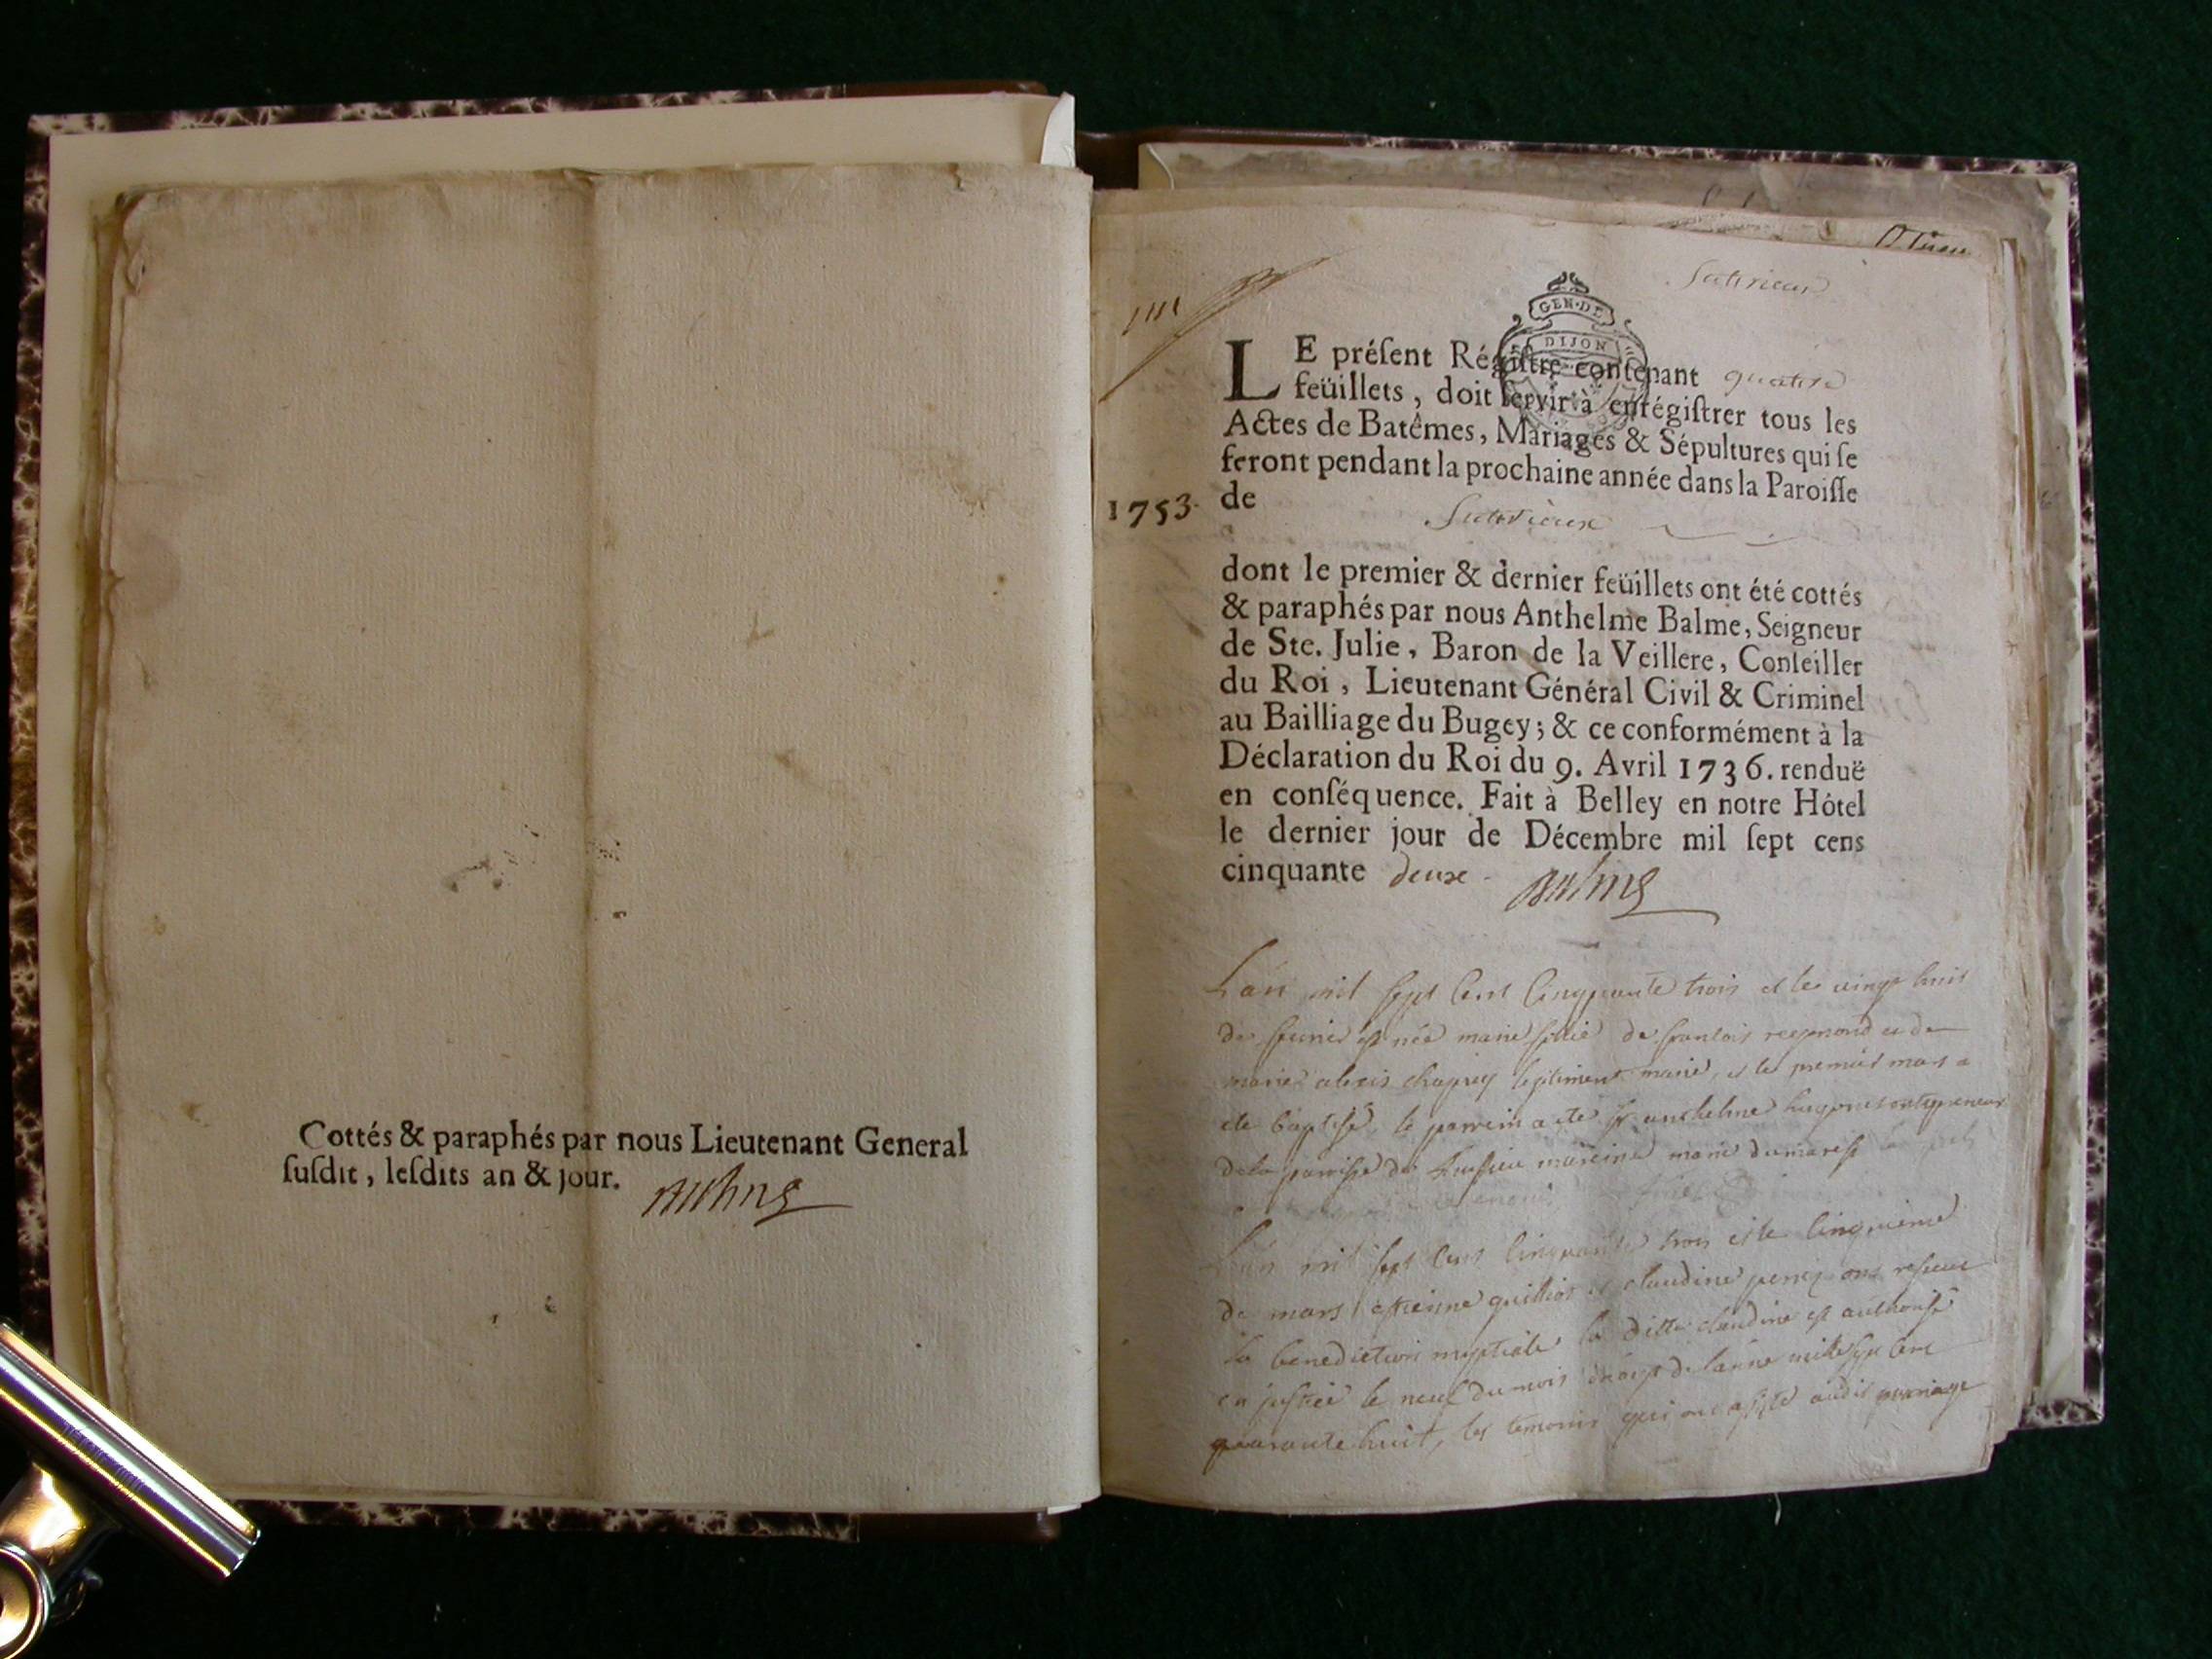 Cottés & paraphés par nous Lieutenant General
ſuſdit, leſdits an & jour.
GEN·DE
DIJON
LE préſent Régiſtre contenant quatre
feüillets, doit ſervir à enrégiſtrer tous les
Actes de Batêmes, Mariages & Sépultures qui ſe
feront pendant la prochaine année dans la Paroiſſe
1753. de
dont le premier & dernier feüillets ont été cottés
& paraphés par nous Anthelme Balme, Seigneur
de Ste. Julie, Baron de la Veillere, Conſeiller
du Roi, Lieutenant Général Civil & Criminel
au Bailliage du Bugey; & ce conformément à la
Déclaration du Roi du 9. Avril 1736. renduë
en conſéquence. Fait à Belley en notre Hôtel
le dernier jour de Décembre mil ſept cens
cinquante deux. Balme
L'an mil sept cent cinquante trois et le vingt huit
de fevrier est née marie fillie de francois et de
marie alexis legitiment marié, et le premier mars a
ete baptisé, le parrein a ete anthelme
de la paroisse de mareine marie dumarest
L'an mil sept cent cinquante trois et le cinquieme
de mars etienne guilliot et claudine perret ont resceue
la benediction nuptiale la ditte claudine est authorisé
en justice le neuf du mois d'aoust de l'anne mille sept cent
quarante huit, les temoins qui ont assisté audit mariage